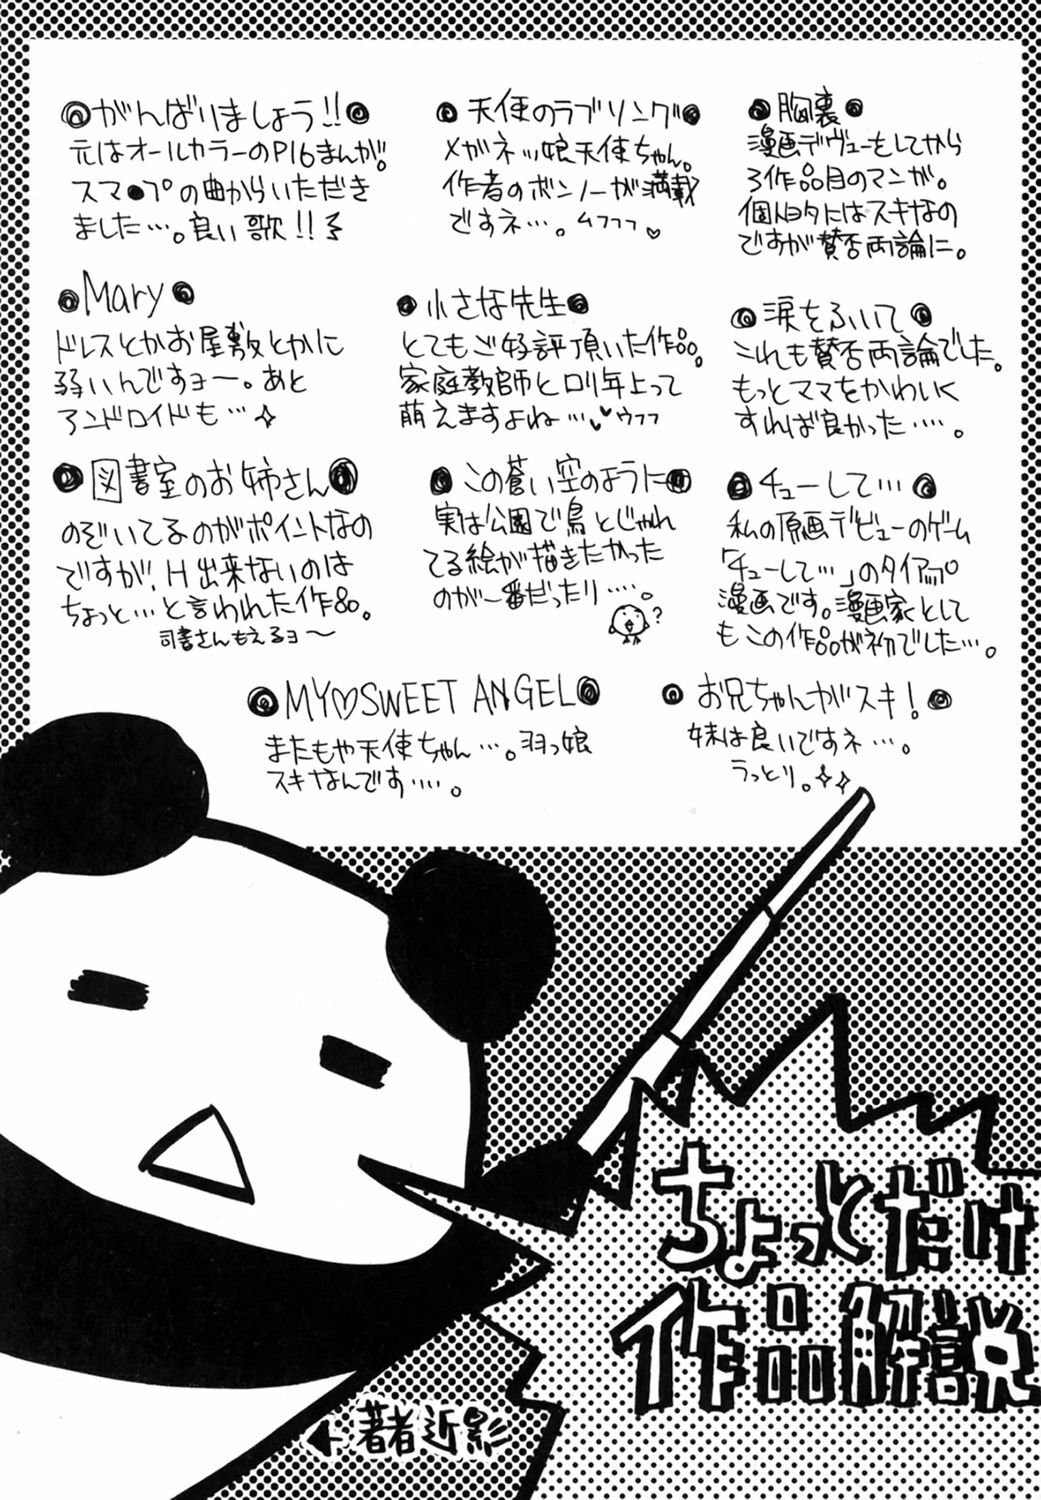 胸裏
漫画デヴューをしてから
3作品目のマンガ。
個人的にはスキなの
ですが賛否両論に。
天使のラブソング
メガネッ娘天使ちゃん。
作者のボンノーが満載
ですネ…。ムフフフ♡
がんばりましょう!!
元はオールカラーのP16まんが。
スマ●プの曲からいただき
ました…。良い歌!!
涙をふいて
これも賛否両論でした。
もっとママをかわいく
すれば良かった……。
小さな先生
とてもご好評頂いた作品。
家庭教師とロリ年上って
萌えますよね…♥ウフフ
Mary
ドレスとかお屋敷とかに
弱いんですヨー。あと
アンドロイドも…✧
チューして…
私の原画デビューのゲーム
「チューして…」のタイアップ
漫画です。漫画家として
もこの作品が初でした…。
この蒼い空のように
実は公園で鳥とじゃれ
てる絵が描きたかった
のが一番だったり……
?
図書室のお姉さん
のぞいてるのがポイントなの
ですが、H出来ないのは
ちょっと…と言われた作品。
司書さんもえるヨ〜
お兄ちゃんがスキ!
妹は良いですネ…。
うっとり。✧✧
MY♡SWEET ANGEL
またもや天使ちゃん…。羽っ娘
スキなんです‥‥。
ちょっとだけ
作品解説
← 著者近影